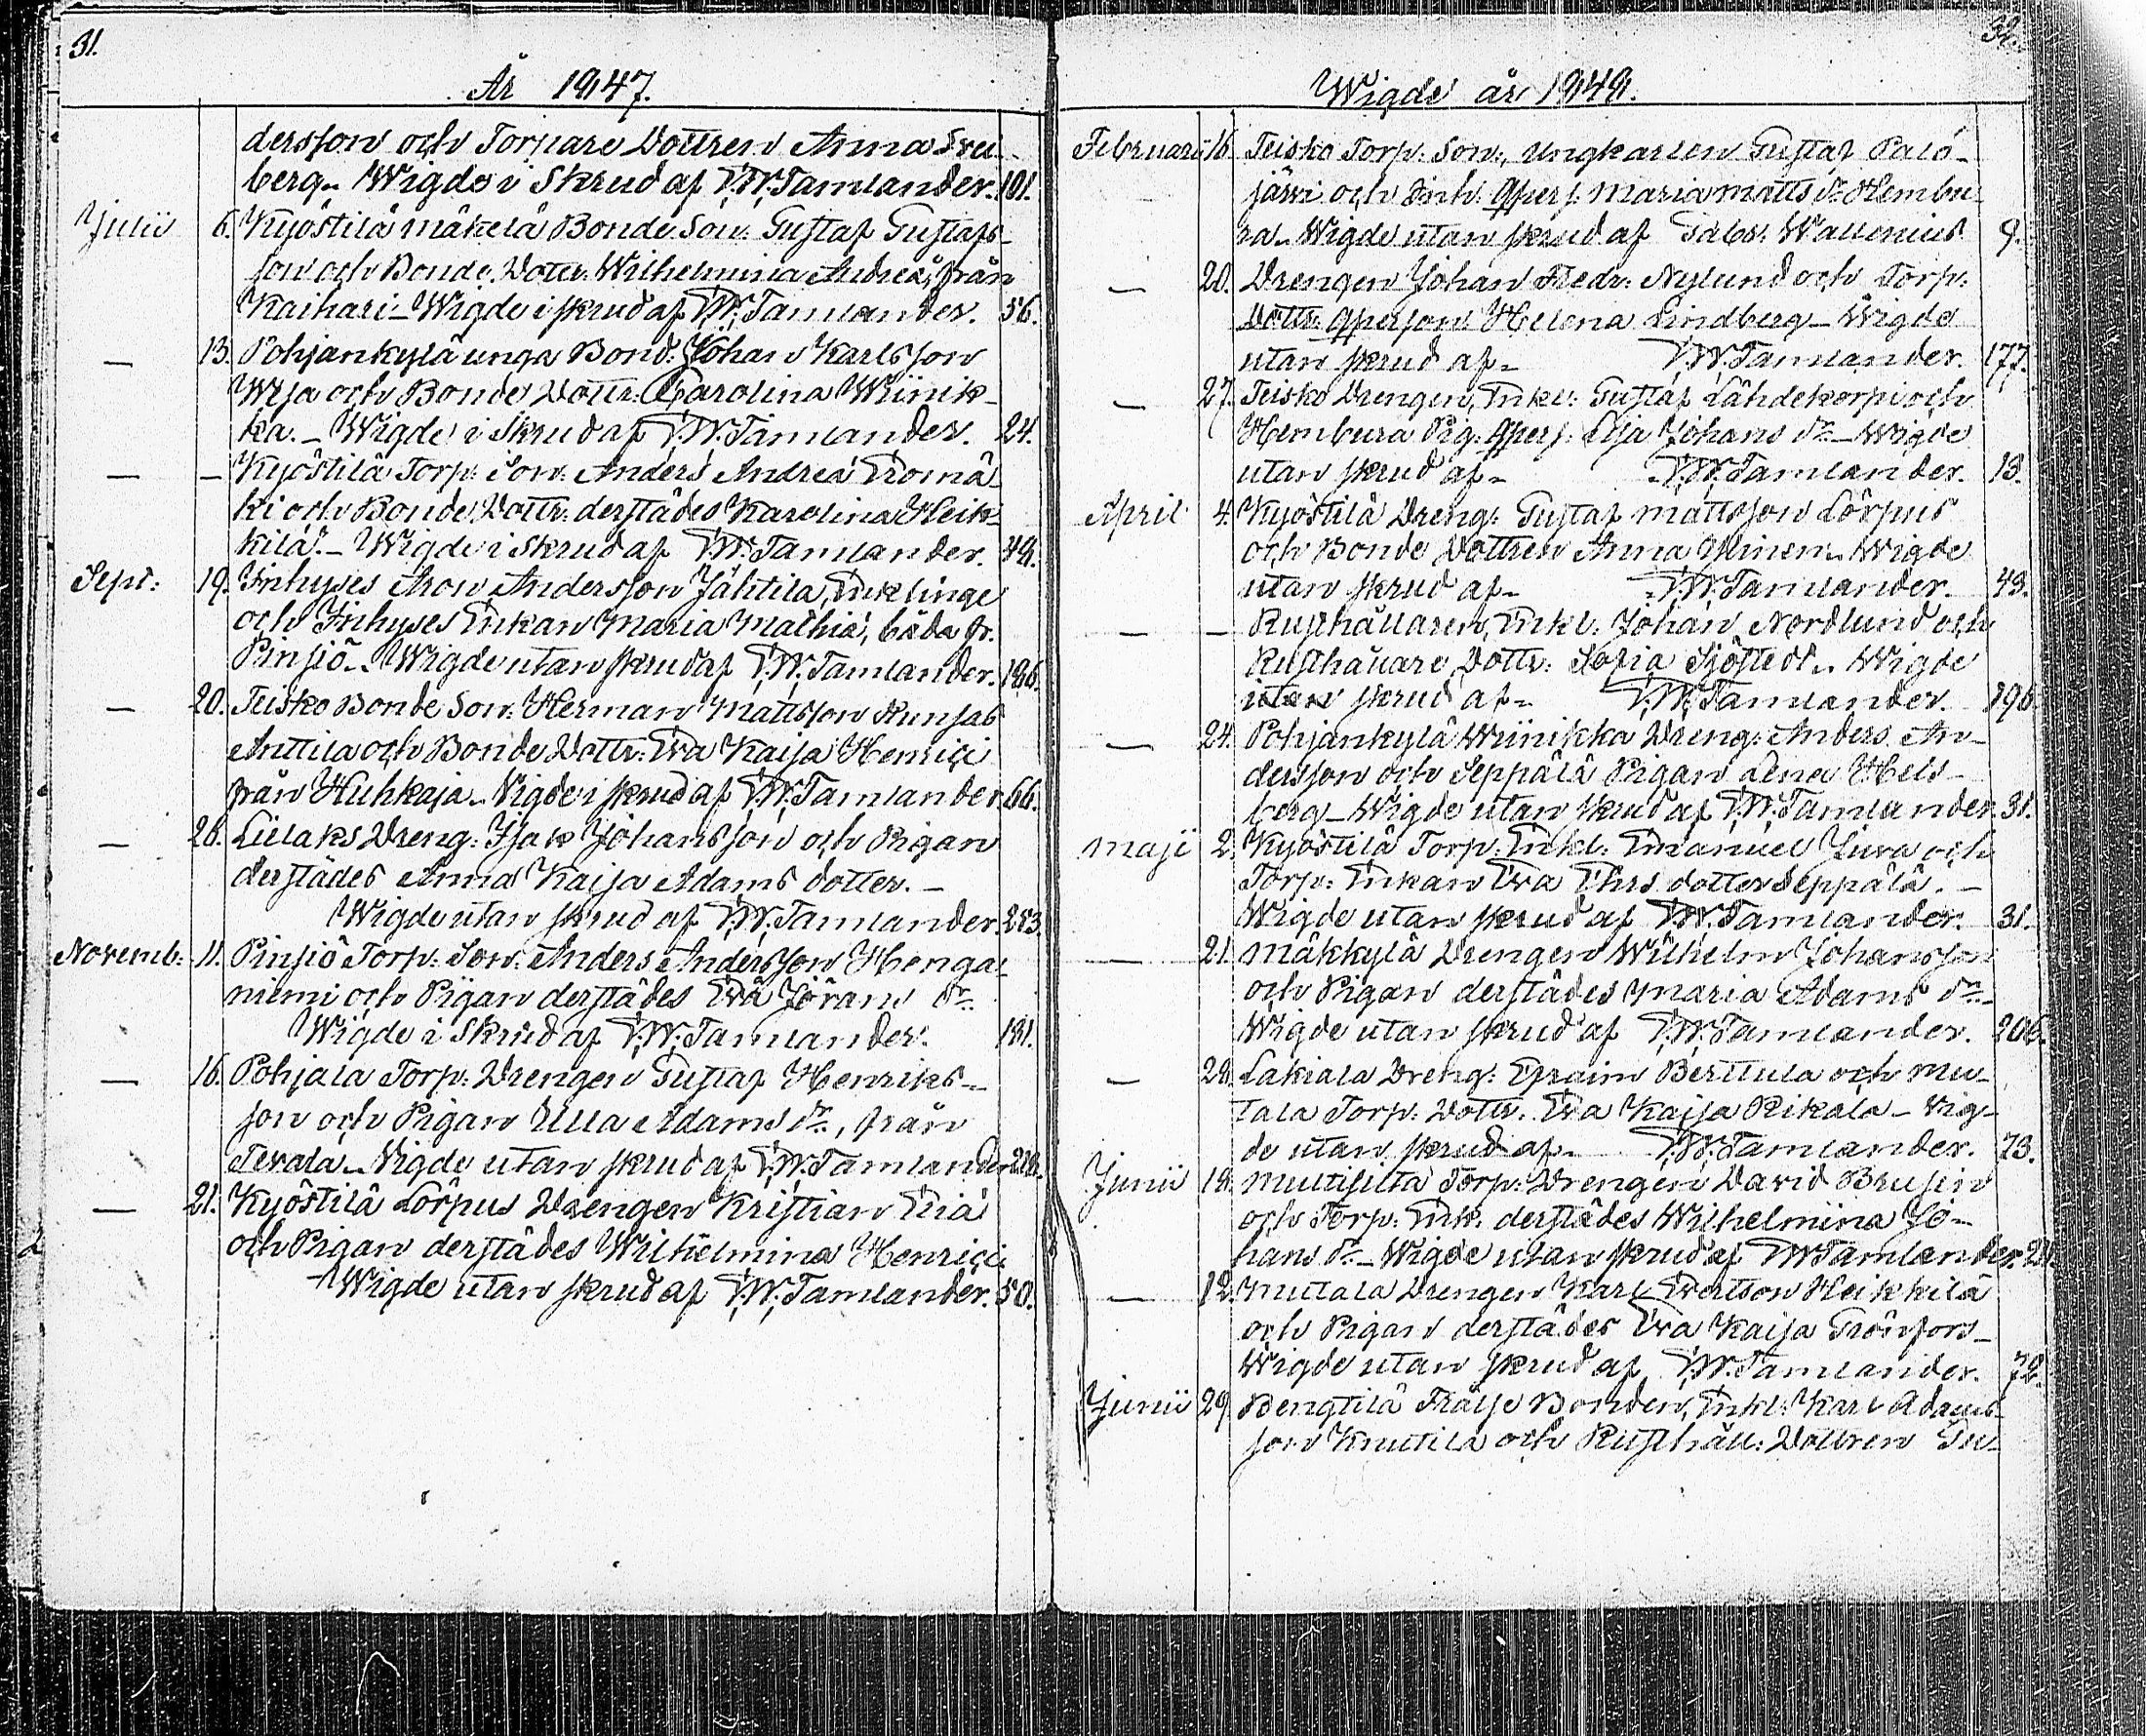 31.
År 1847.
dersson och Torpare Dottren Anna Frei-
berg. Wigde i Skrud af F:W:Tamlander. 101.
Julii 6. Kyöstilä Mäkelä Bonde Son: Gustaf Gustafs-
son och Bonde Dottr: Wilhelmina Andreä, från
Kaihari - Wigde i skrud af F:W:Tamlander. 56.
— 13. Pohjankylä unga Bond: Johan Karlsson
Uja och Bonde Dottr: Carolina Wiinik-
ka. - Wigde i Skrud af F:W:Tamlander. 24.
— — Kyöstilä Torp: Son: Anders Andreä Eromä-
ki och Bonde Dottr: derstädes Karolina Heik-
kilä. - Wigde i Skrud af F:W:Tamlander. 48.
Sept: 19. Inhyses Aron Andersson Jähtilä, Enklinge
och Inhyses Enkan Maria Mathiä, båda fr.
Pinsiö. - Wigde utan skrud af F:W:Tamlander. 186.
— 20. Teisko Bonde Son: Herman Mattsson Kunjas
Anttila och Bonde Dottr: Eva Kaija Henrici
från Kuhkaja. Wigde i skrud af F:W:Tamlander. 66.
— 28. Lielaks Dreng: Isak Johansson och Pigan
derstädes Anna Kaija Adams dotter. -
Wigde utan skrud af F:W:Tamlander. 253.
Novemb: 11. Pinsiö Torp: Son: Anders Andersson Honga-
niemi och Pigan derstädes Eva Jörans dr.
Wigde i Skrud af F:W:Tamlander. 181.
— 16. Pohjala Torp: Drengen Gustaf Henriks-
son och Pigan Ulla Adams dr., från
Tevala. Wigde utan skrud af F:W:Tamlander 218.
— 21. Kyöstilä Lörpus Drengen Kristian Eliä
och Pigan derstädes Wilhelmina Henrici
Wigde utan skrud af F:W:Tamlander. 50.
32.
Wigde år 1848.
Februarii 16. Teisko Torp: Son:, Ungkarlen Gustaf Palo-
järvi och Enk: Qpers: Maria Matts dr. Hembu-
ra. Wigde utan skrud af Gabr: Wallenius 9.
— 20. Drengen Johan Fredr: Nylund och Torp:
Dottr: Qperson Helena Lindberg - Wigde
utan skrud af - F:W:Tamlander. 177.
— 27. Teisko Drengen, Enkl: Gustaf Lähdekorpi och
Hembura Pig: Qpers: Lisa Johans dr. - Wigde
utan skrud af - F:W:Tamlander. 13.
April 4. Kyöstilä Dreng: Gustaf Mattsson Lörpus
och Bonde Dottren Anna Ylinen. Wigde
utan skrud af - F:W:Tamlander. 43.
— — Rusthållaren, Enkl: Johan Nordlund och
Rusthållare Dottr: Sofia Sjöstedt. Wigde
utan skrud af - F:W:Tamlander. 196.
— 24. Pohjankylä Wiinikka Dreng: Anders An-
dersson och Seppälä Pigan Lena Hels-
berg - Wigde utan skrud af F:W:Tamlander. 31.
Maji 2. Kyöstilä Torp: Enkl: Emanuel Juva och
Torp: Enkan Eva Thrs dotter Seppälä. -
Wigde utan skrud af F:W:Tamlander. 31.
— 21. Mäkkylä Drengen Wilhelm Johansson
och Pigan derstädes Maria Adams dr. -
Wigde utan skrud af F:W:Tamlander. 206.
— 28. Lakiala Dreng: Efraim Berttula och Mu-
tala Torp: Dottr: Eva Kaija Rikala - Wig-
de utan skrud af - F:W:Tamlander. 73.
Junii 18. Multisilta Torp: Drengen David Brusin
och Torp: Enk: derstädes Wilhelmina Jo-
hans dr. - Wigde utan skrud af F:W:Tamlander.
— 12. Mutala Drengen Karl Evertson Heikkilä
och Pigan derstädes Eva Kaija Grönfors -
Wigde utan skrud af F:W:Tamlander. 72.
Junii 29. Bengtilä Frälse Bonden, Enkl: Karl Adams-
son Knutila och Rusthåll: Dottren Gu-